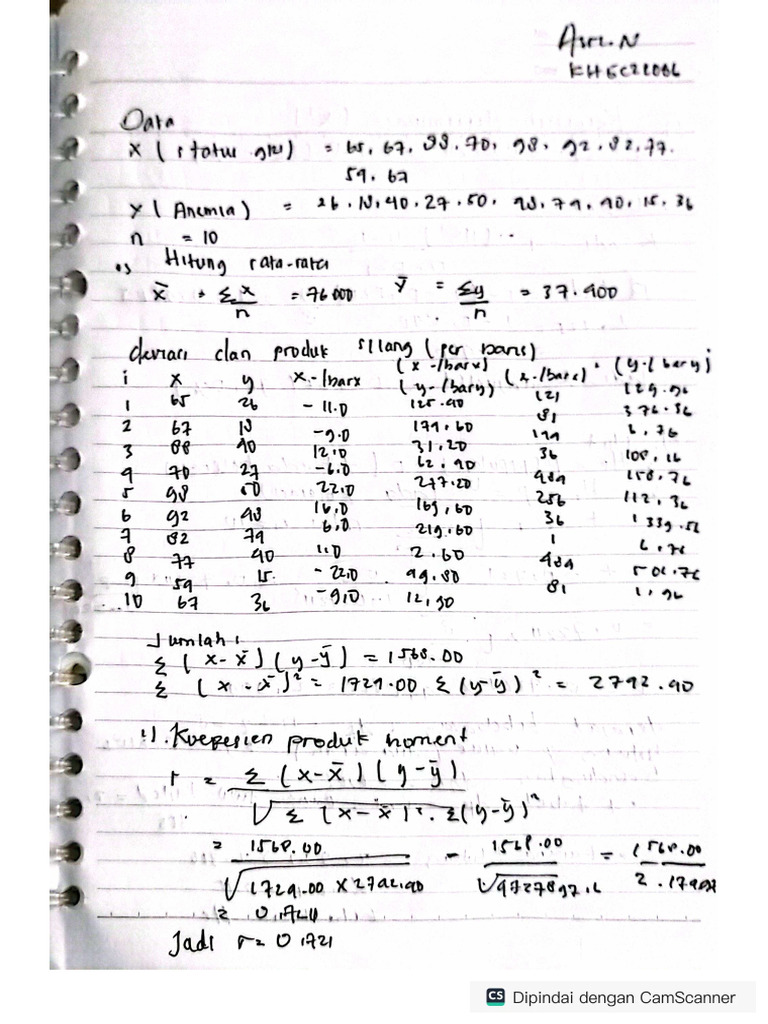 Asri.N
KHGC22006
Data
X ( status gizi) = 65, 67, 88, 70, 98, 92, 82, 77,
59, 67
Y ( Anemia) = 26, 18, 40, 27, 50, 48, 79, 40, 15, 36
n = 10
Hitung rata-rata
x̄ = Σx/n = 76.000 ȳ = Σy/n = 37.900
deviasi dan produk silang (per baris)
i x y x-/barx (x-/barx) (y-/bary) (x-/barx)² (y-/bary)²
1 65 26 -11.0 125.40 121 129.96
2 67 18 -9.0 174.60 81 376.36
3 88 40 12.0 31.20 144 6,76
4 70 27 -6.0 62.40 36 108,16
5 98 50 22.0 277.20 484 158,76
6 92 48 16.0 169,60 256 112,36
7 82 79 6.0 219.60 36 1339.56
8 77 40 1.0 2.60 1 6.76
9 59 15 -22.0 99.80 484 501.76
10 67 36 -9.0 12,30 81 1,96
Jumlah :
Σ (x-x̄) (y-ȳ) = 1568.00
Σ (x-x̄)² = 1724.00, Σ(y-ȳ)² = 2742.40
1). Koefesien produk moment
r = Σ (x-x̄) (y-ȳ)
√Σ (x-x̄)². Σ(y-ȳ)²
= 1568.00 = 1568.00 = 1568.00
√1724.00 x 2742.40
= 0,7211
Jadi r = 0,721
CS Dipindai dengan CamScanner